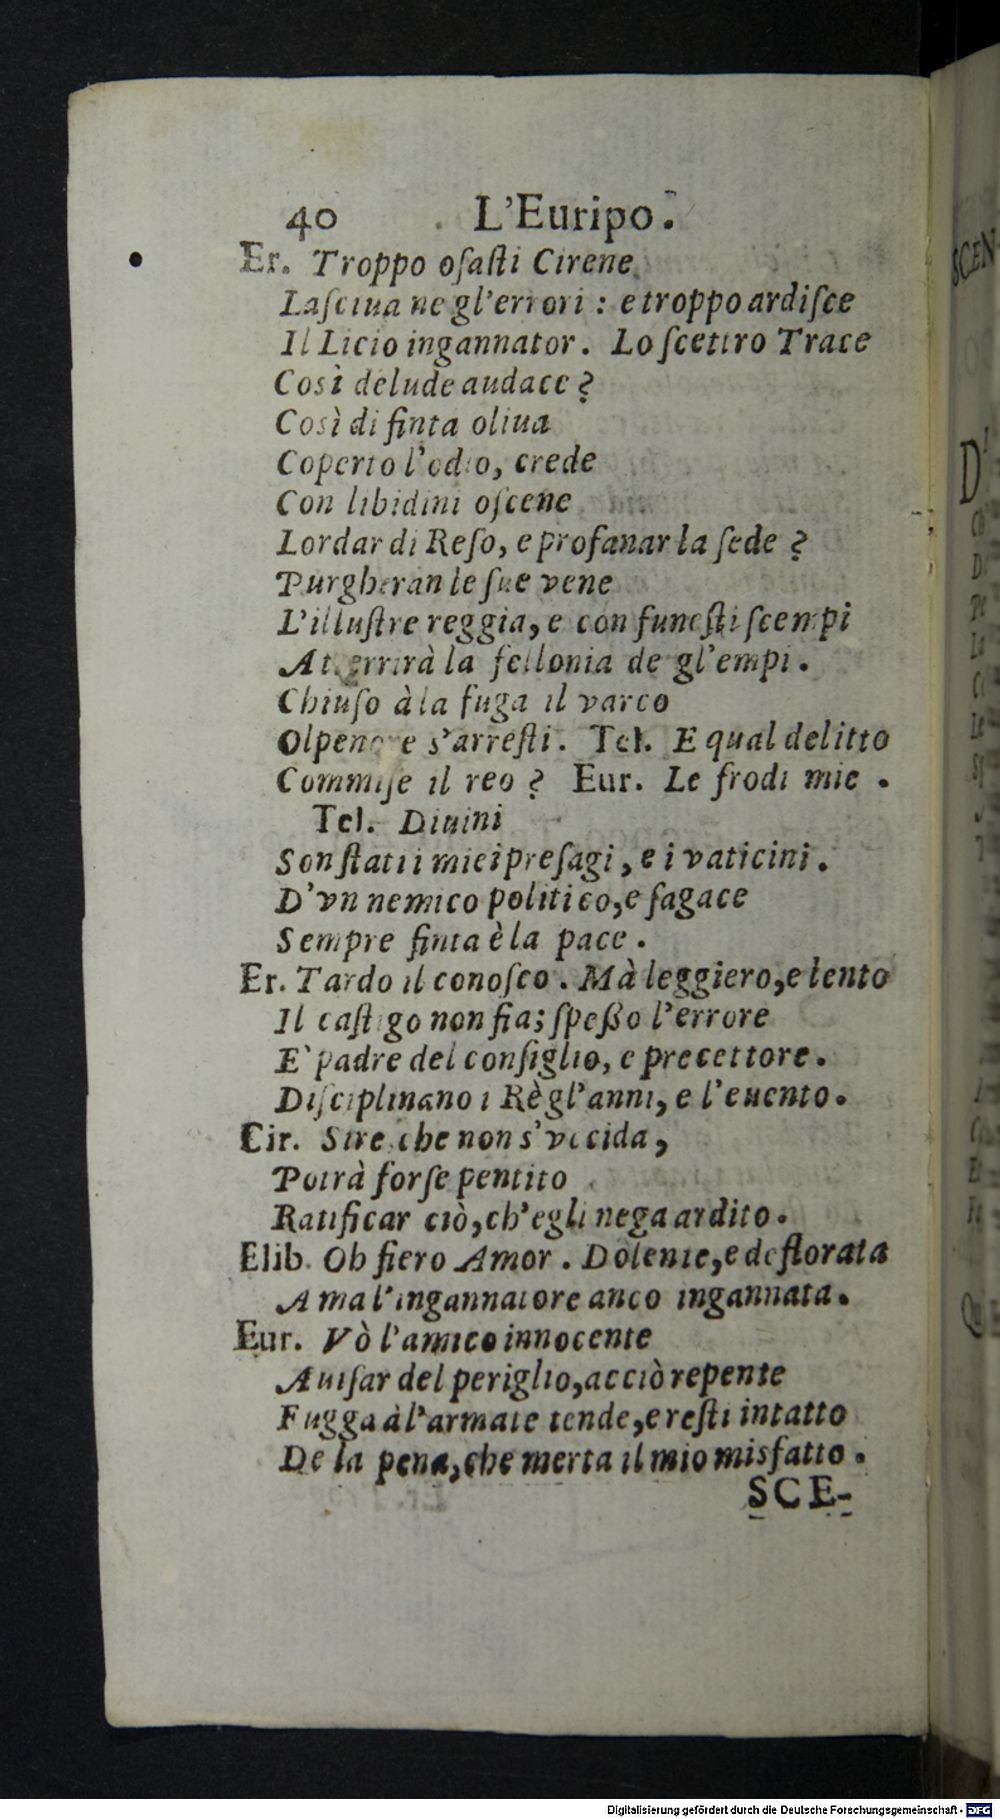 40 L'Euripo.
Er. Troppo oſaſti Cirene
Laſciua ne gl'errori : e troppo ardiſce
Il Licio ingannator. Lo ſcettro Trace
Così delude audace ?
Così di finta oliua
Coperto l'odio, crede
Con libidini oſcene
Lordar di Reſo, e profanar la ſede ?
Purgheran le ſue vene
L'illuſtre reggia, e con funeſti ſcempi
Atterrirà la fellonia de gl'empi.
Chiuſo à la fuga il varco
Olpenore s'arreſti. Tel. E qual delitto
Commiſe il reo ? Eur. Le frodi mie .
Tel. Diuini
Son ſtati i miei preſagi, e i vaticini.
D'vn nemico politico, e ſagace
Sempre finta è la pace.
Er. Tardo il conoſco. Mà leggiero, e lento
Il caſtigo non fia; ſpeßo l'errore
E` padre del conſiglio, e precettore.
Diſciplinano i Rè gl'anni, e l'euento.
Cir. Sire che non s'vccida,
Potrà forſe pentito
Ratificar ciò, ch'egli nega ardito.
Elib. Oh fiero Amor. Dolente, e deflorata
Ama l'ingannatore anco ingannata.
Eur. Vò l'amico innocente
Auiſar del periglio, acciò repente
Fugga à l'armate tende, e reſti intatto
De la pena, che merta il mio misfatto.
SCE-
SCEN
D'
Digitalisierung gefördert durch die Deutsche Forschungsgemeinschaft - DFG